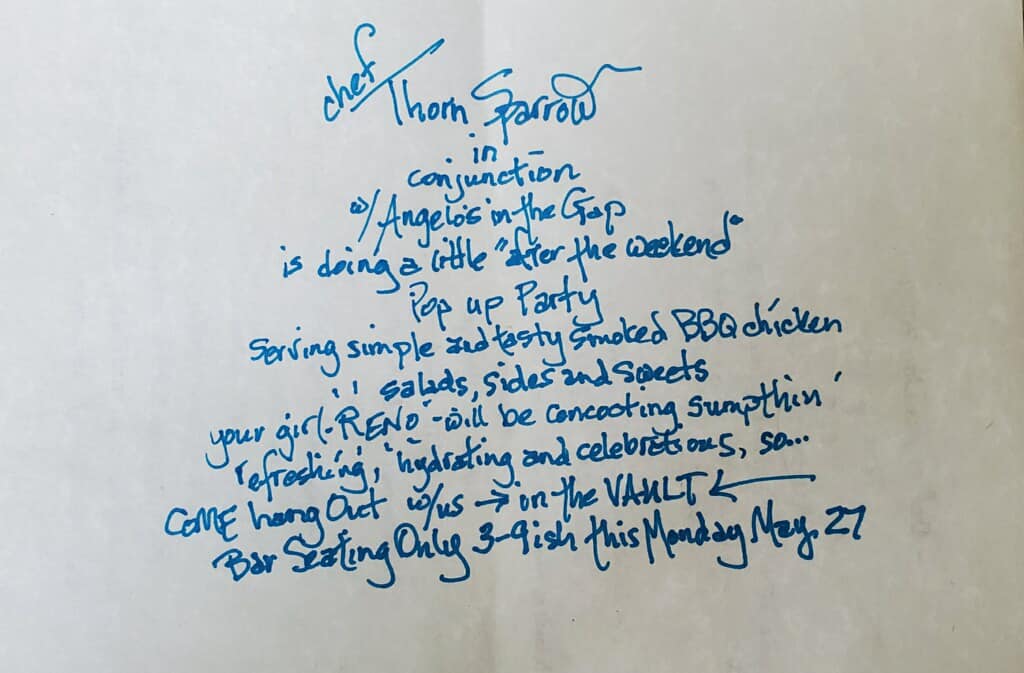 chef Thorn Sparrow
in
conjunction
w/ Angelo's in the Gap
is doing a little "after the weekend"
Pop up Party
Serving simple and tasty smoked BBQ chicken
salads, sides and sweets
your girl - "RENO" - will be concocting sumpthin'
refreshing, hydrating and celebratious, so...
COME hang Out w/us → in the VAULT ←
Bar Seating Only 3-9ish this Monday May. 27